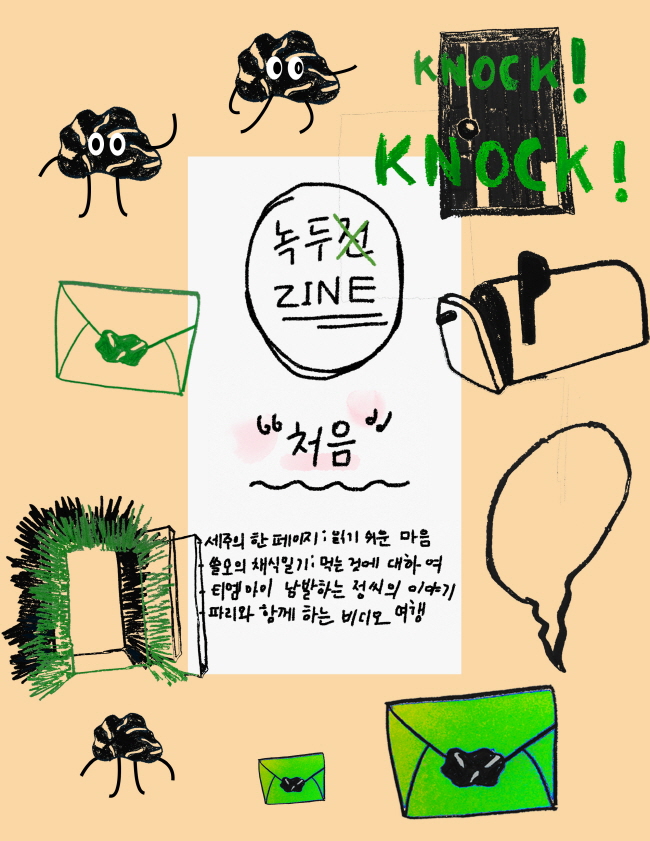 KNOCK!
KNOCK!
녹두전
ZINE
"처음"
- 세주의 한 페이지; 읽기 쉬운 마음
- 쏠오의 채식일기; 먹는 것에 대하여
- 티엠아이 남발하는 정씨의 이야기
- 파리와 함께 하는 비디오 여행